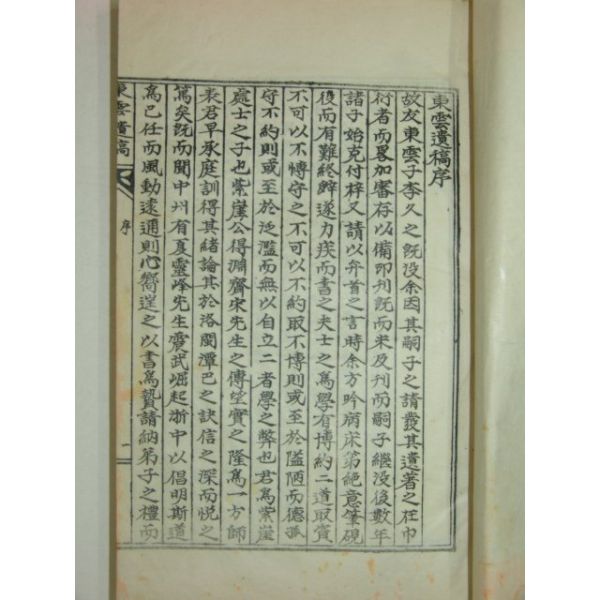 東雲遺稿序
故友東雲子李久之既没余因其嗣子之請叢其遺著之在巾
衍者而畧加審存以備印刊既而未及刊而嗣子繼没後數年
諸子始克付梓又請以弁首之言時余方吟病床第絶意筆硯
後而有難終辭遂力疾而書之夫士之爲學有博約二道取資
不可以不博守之不可以不約取不博則或至於隘陋而德孤
守不約則或至於泛濫而無以自立二者學之弊也君爲紫崖
處士之子也紫崖公得淵齋宋先生之傳望實之隆爲一方師
表君早承庭訓得其緒論其於洛閩潭巴之訣信之深而悦之
篤矣既而聞中州有夏靈峰先生震武崛起浙中以倡明斯道
爲己任而風動遠通則心嚮逞之以書爲贄請納弟子之禮而
東雲遺稿
序
一